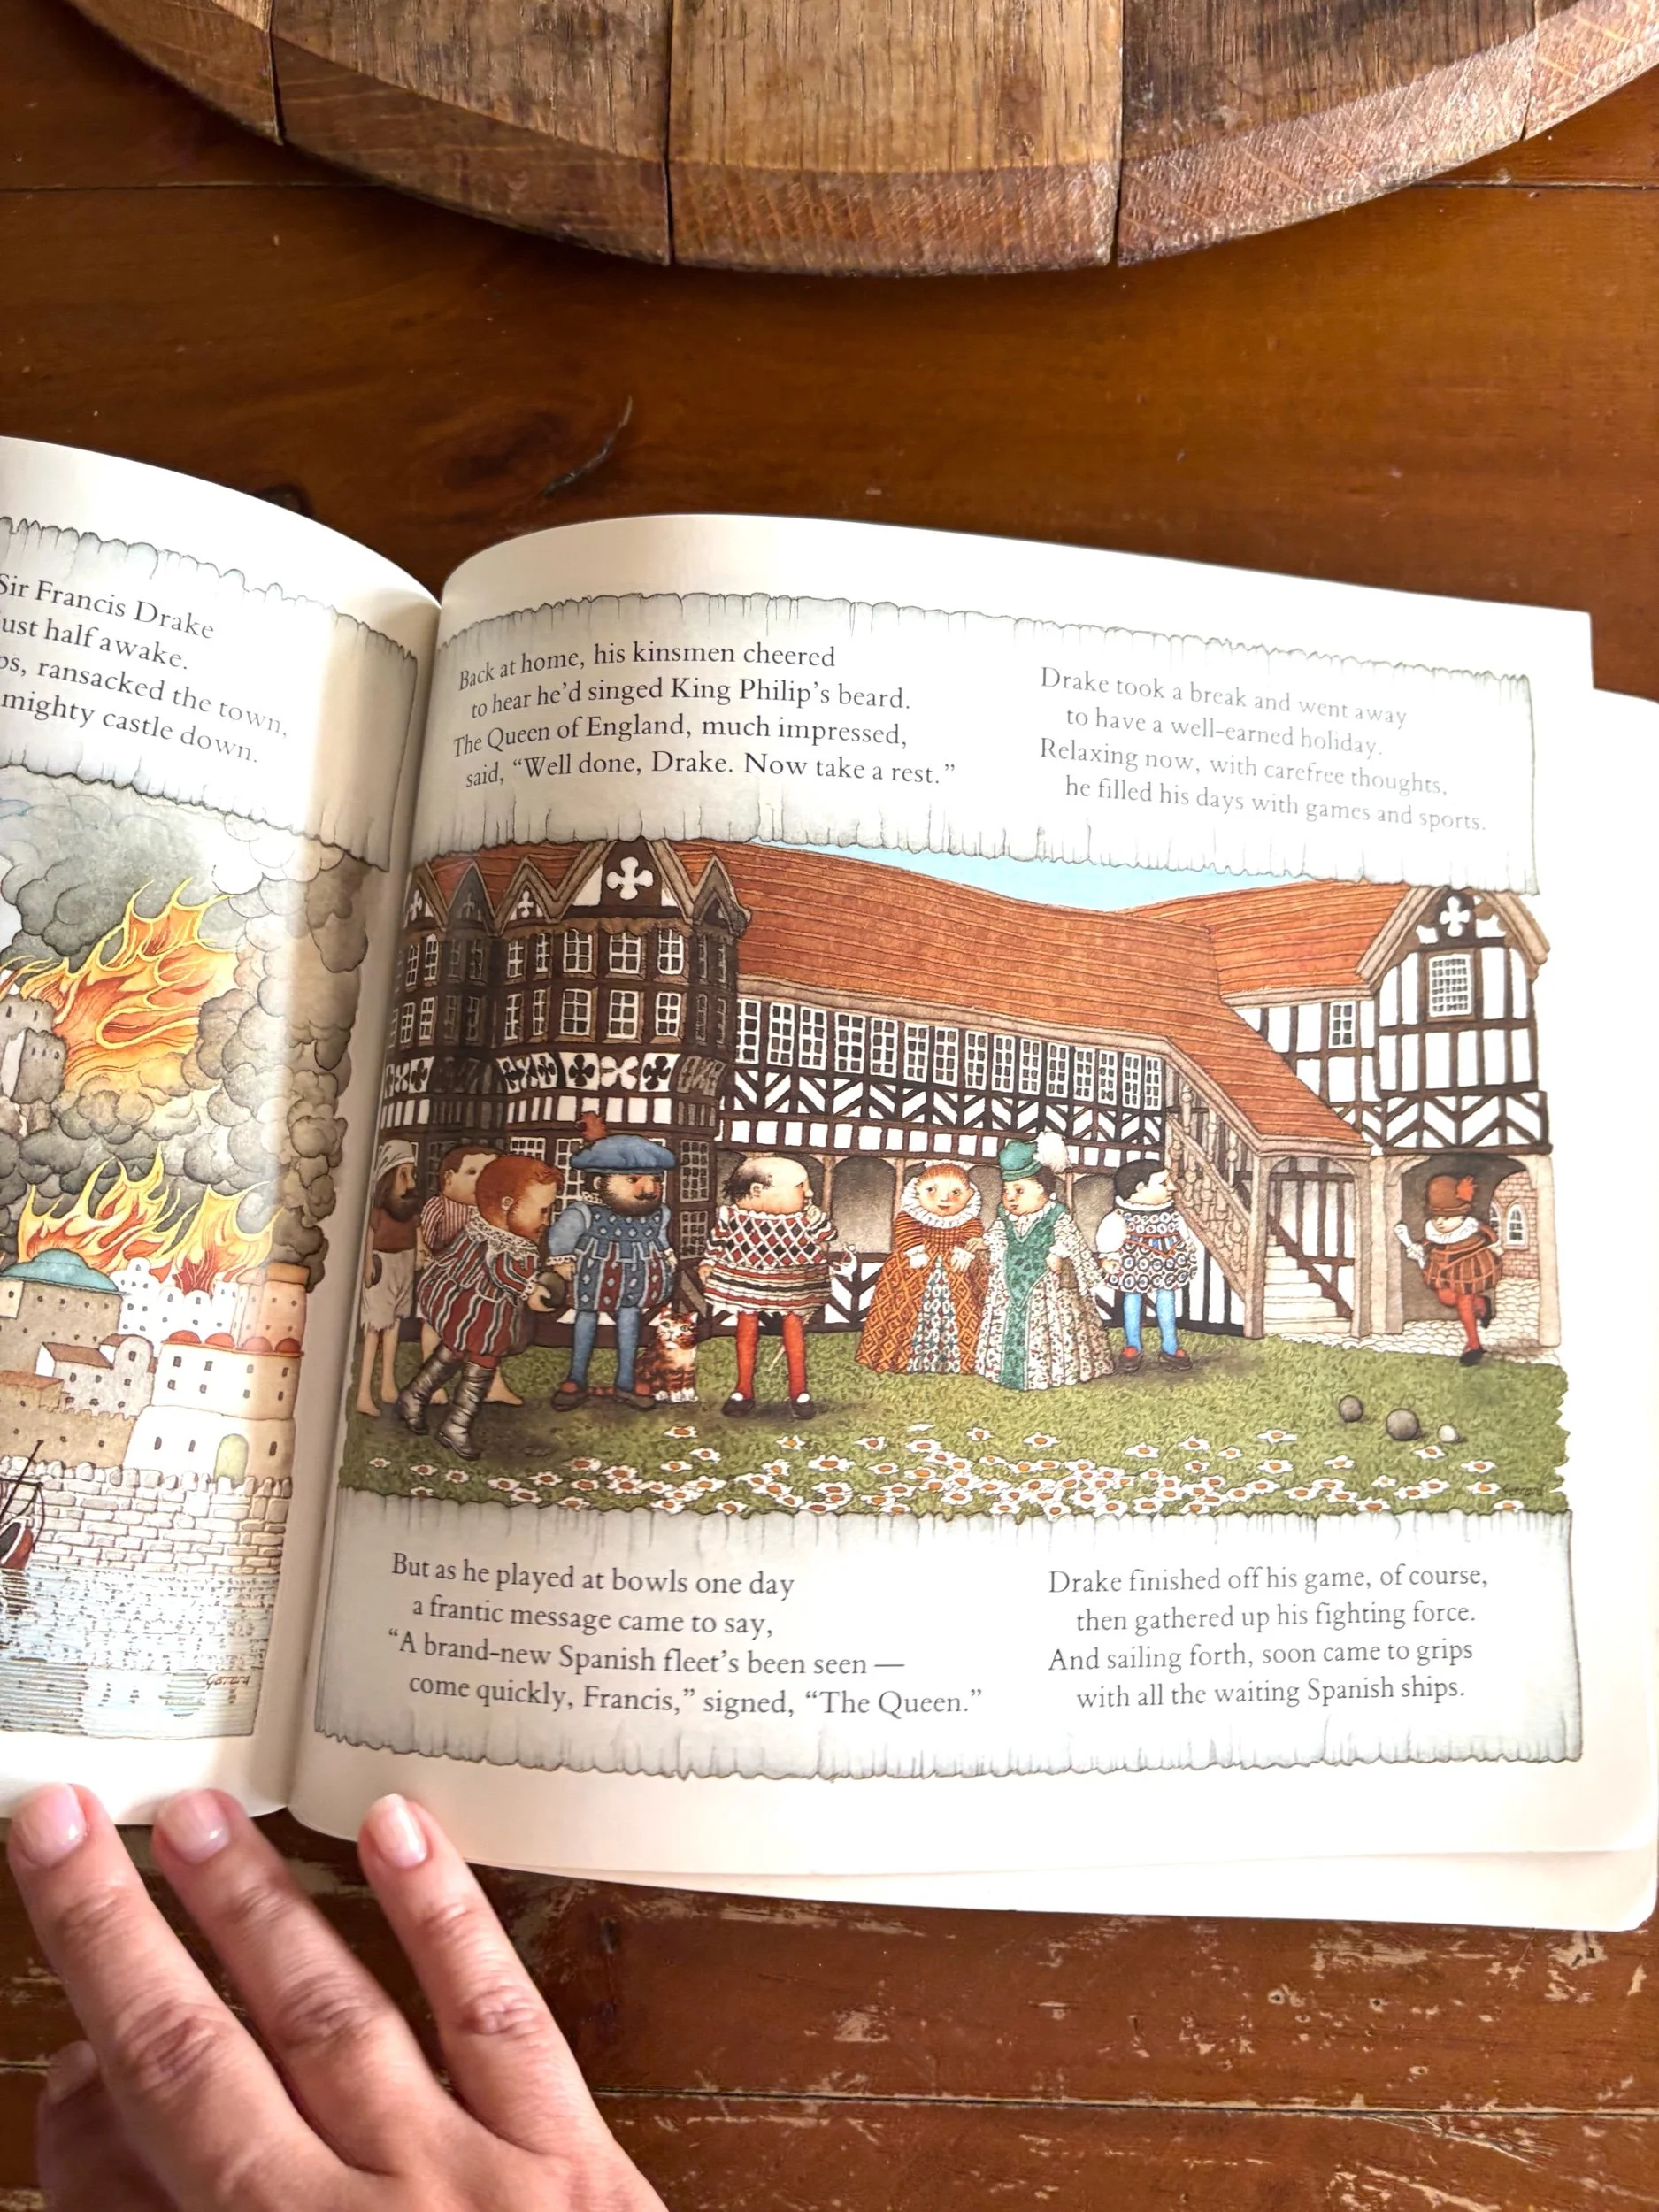 Sir Francis Drake
ust half awake.
ps, ransacked the town,
mighty castle down.
Garrard
Back at home, his kinsmen cheered
to hear he'd singed King Philip's beard.
The Queen of England, much impressed,
said, “Well done, Drake. Now take a rest.”
Drake took a break and went away
to have a well-earned holiday.
Relaxing now, with carefree thoughts,
he filled his days with games and sports.
But as he played at bowls one day
a frantic message came to say,
“A brand-new Spanish fleet's been seen —
come quickly, Francis,” signed, “The Queen.”
Drake finished off his game, of course,
then gathered up his fighting force.
And sailing forth, soon came to grips
with all the waiting Spanish ships.